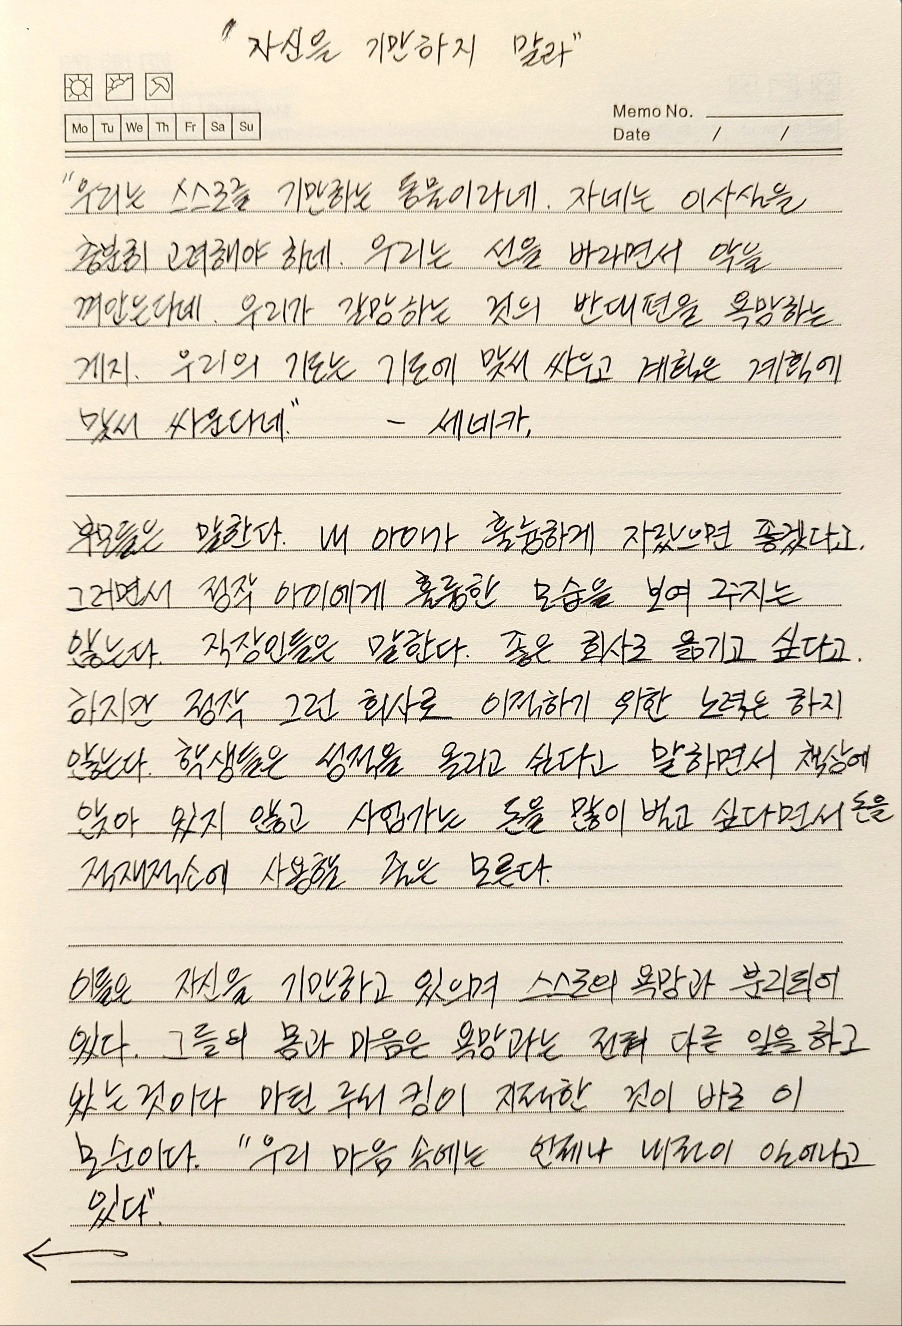 "자신을 기만하지 말라"
Mo Tu We Th Fr Sa Su
Memo No.
Date / /
"우리는 스스로를 기만하는 동물이라네. 자네는 이사실을
충분히 고려해야 하네. 우리는 선을 바라면서 악을
껴안는다네. 우리가 갈망하는 것의 반대편을 욕망하는
게지. 우리의 기도는 기도에 맞서 싸우고 계획은 계획에
맞서 싸운다네." - 세네카,
부모들은 말한다. 내 아이가 훌륭하게 자랐으면 좋겠다고.
그러면서 정작 아이에게 훌륭한 모습을 보여 주지는
않는다. 직장인들은 말한다. 좋은 회사로 옮기고 싶다고.
하지만 정작 그런 회사로 이직하기 위한 노력은 하지
않는다. 학생들은 성적을 올리고 싶다고 말하면서 책상에
앉아 있지 않고 사업가는 돈을 많이 벌고 싶다면서 돈을
적재적소에 사용할 줄은 모른다.
이들은 자신을 기만하고 있으며 스스로의 욕망과 분리되어
있다. 그들의 몸과 마음은 욕망과는 전혀 다른 일을 하고
있는 것이다 마틴 루터 킹이 지적한 것이 바로 이
모순이다. "우리 마음 속에는 언제나 내전이 일어나고
있다".